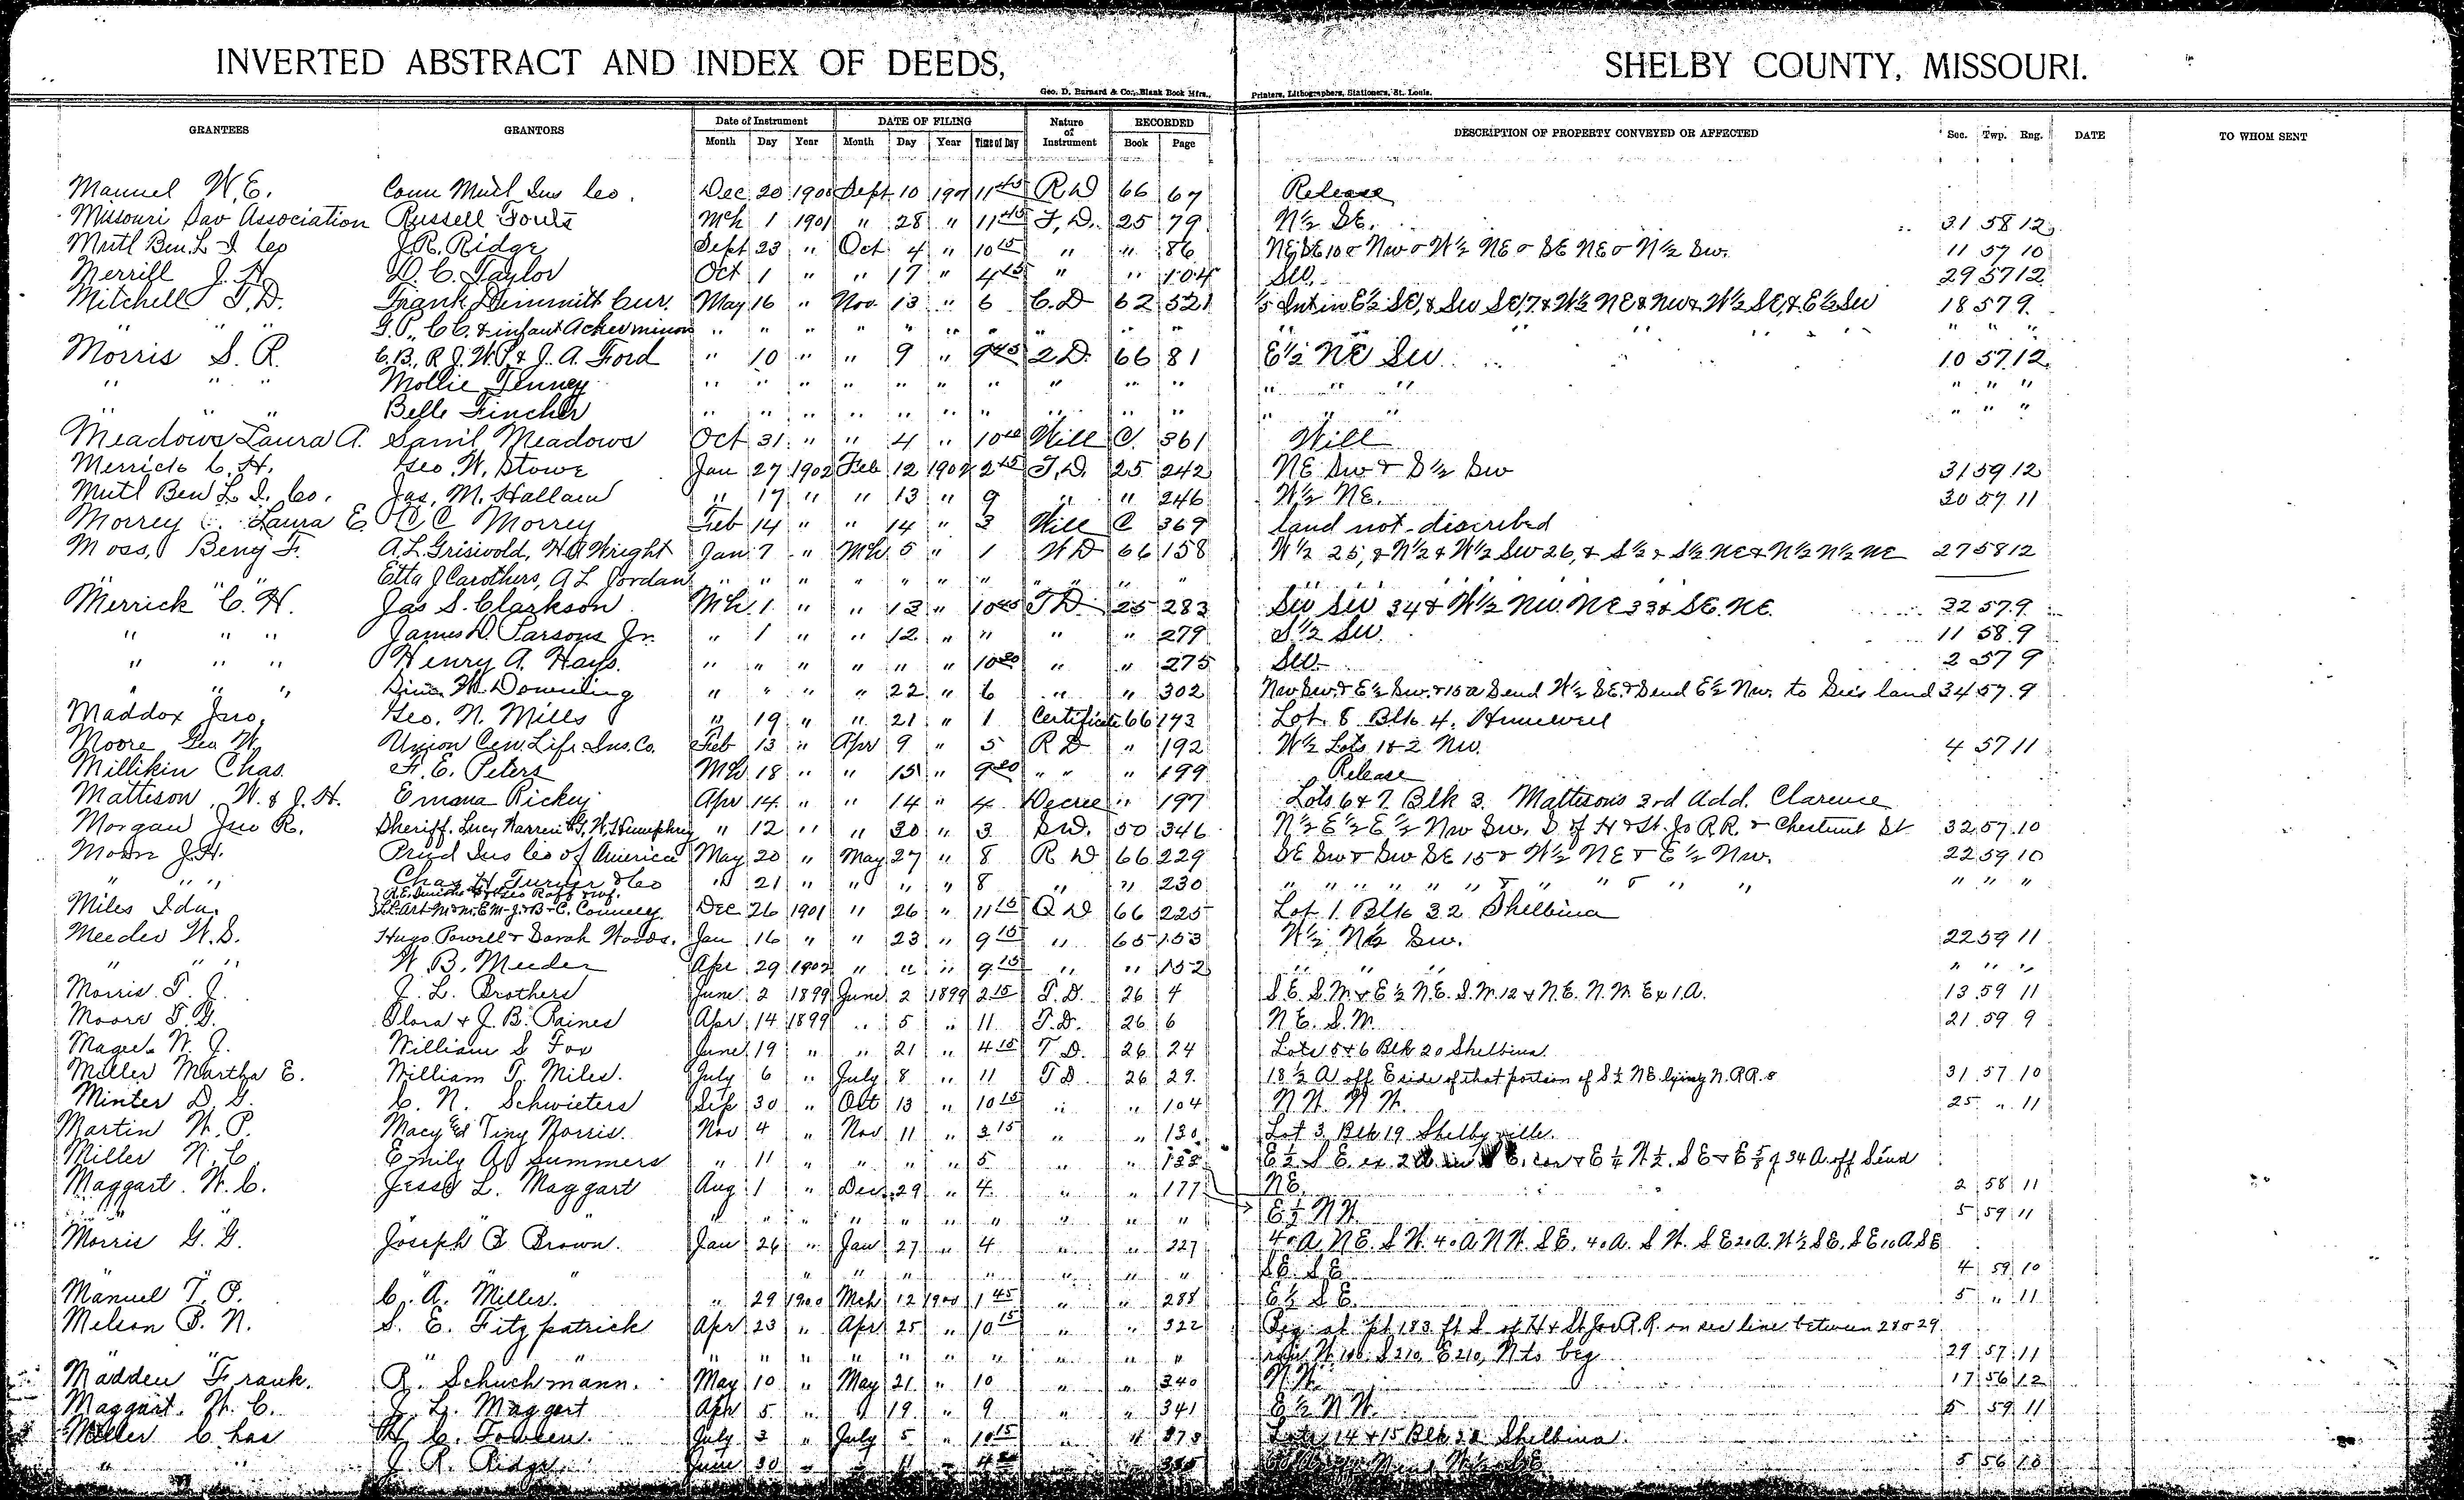 INVERTED ABSTRACT AND INDEX OF DEEDS, SHELBY COUNTY, MISSOURI.
Geo. D. Barnard & Co., Blank Book Mfrs., Printers, Lithographers, Stationers, St. Louis.
GRANTEES GRANTORS Date of Instrument DATE OF FILING Nature of Instrument RECORDED DESCRIPTION OF PROPERTY CONVEYED OR AFFECTED Sec. Twp. Rng. DATE TO WHOM SENT
Month Day Year Month Day Year Time of Day Book Page
Manuel W. E. Conn Mutl Ins Co. Dec 20 1900 Sept 10 1901 11 45 R D 66 67 Release
Missouri Sav Association Russell Fouts Mch 1 1901 " 28 " 11 45 T. D. 25 79 N½ SE. 31 58 12
Mutl Ben. L I Co J. R. Ridge Sept 23 " Oct 4 " 10 15 " " 86 NE SE 10 & Nw & W½ NE & SE NE & N½ Sw. 11 57 10
Merrill J. H. D. C. Taylor Oct 1 " " 17 " 4 45 " " 104 29 57 12
Mitchell T. D. Frank Dimmitt Cur. May 16 " Nov. 13 " 6 C. D 62 521 1/5 Int in E½ SE, & Sw SE, 7 & W½ NE & NW & W½ SE, & E½ SW 18 57 9
" " " G. P., C. C. & infant Acker minors " " " " " " " " " " " " "
Morris S. R. C. B., R. J. W. P. & J. A. Ford " 10 " " 9 " 9 45 2 D. 66 81 E½ NE SW 10 57 12
" " " Mollie Tenney " " " " " " " " " " " " " " " "
" " Belle Fincher " " " " " " " " " " " " " " " "
Meadows Laura A. Saml Meadows Oct 31 " " 4 " 10 Will C. 361 Will
Merrick C. H. Geo. W. Stowe Jan 27 1902 Feb 12 1902 2 15 T. D. 25 242 NE Sw & S½ Sw 31 59 12
Mutl Ben L I. Co. Jas. M. Hallam " 17 " " 13 " 9 " " 246 W½ NE. 30 57 11
Morrey Laura E C C Morrey Feb 14 " " 14 " 3 Will C 369 land not discribed
Moss, Benj F. A. L. Griswold, H A Wright Jan 7 " Mch 5 " 1 W D 66 158 W½ 25, & N½ & W½ Sw 26, & S½ & S½ NE & N½ N½ NE 27 58 12
Etta J Carothers, A L Jordan " " " " " " " " " " "
Merrick C. H. Jas S. Clarkson Mch 1 " " 13 " 10 45 T D 25 283 SW SW 34 & W½ NW. NE 33 & SE. NE. 32 57 9
" " " James D. Parsons Jr. " 1 " " 12 " " " " 279 S½ SW. 11 58 9
" " " Henry A. Hays. " " " " " " 10 20 " " 275 2 57 9
" " " W. Dowling " " " " 22 " 6 " " 302 Nw Sw. & E½ Sw. & 15 a S end W½ SE & S end E½ Nw. to land 34 57 9
Maddox Jno. Geo. N. Mills " 19 " " 21 " 1 Certificate 66 173 Lot 8 Blk 4, Hunnewell
Moore Geo W. Union Cen. Life Ins. Co. Feb 13 " Apr 9 " 5 R D " 192 W½ Lots 1 & 2 NW. 4 57 11
Millikin Chas. F. E. Peters Mch 18 " " 15 " 9 20 " " " 199 Release
Mattison W. & J. H. Emma Rickey Apr 14 " " 14 " 4 Decree " 197 Lots 6 & 7 Blk 3. Mattison's 3rd Add. Clarence
Morgan Jno R. Sheriff. Lucy Warren G. W. Humphrey " 12 " " 30 " 3 SD. 50 346 N½ E½ E½ Nw Sw. S of H & St. Jo R.R. & Chestnut St 32 57 10
Moon J. H. Prud Ins Co of America May 20 " May 27 " 8 R D 66 229 SE Sw & Sw SE 15 & W½ NE & E½ Nw. 22 59 10
" " " Chas H Turner & Co " 21 " " " " 8 " " 230 " " " " " " " " " " " " "
Miles Ida. C. Connely. Dec 26 1901 " 26 " 11 15 Q D 66 225 Lot 1 Blk 32 Shelbina
Meeder W. S. Hugo Powell & Sarah Woods. Jan 16 " " 23 " 9 15 " 65 153 W½ N½ Sw. 22 59 11
" " " W. B. Meeder Apr 29 1902 " " " 9 15 " " 152 " " " " " "
Morris T. J. J. L. Brothers June 2 1899 June 2 1899 2 15 T. D. 26 4 S E. S. W. & E½ N. E. S. W. 12 & N. E. N. W. Ex 1 A. 13 59 11
Moore T. G. Flora & J. B. Raines Apr 14 1899 " 5 " 11 T. D. 26 6 N E. S. W. 21 59 9
Magee W. J. William S Fox June 19 " " 21 " 4 15 T D. 26 24 Lots 5 & 6 Blk 20 Shelbina.
Miller Martha E. William T. Miles. July 6 " July 8 " 11 T D. 26 29. 18½ A off E side of that portion of S½ NE lying N. R.R. 31 57 10
Minter D. G. C. N. Schwieters Sep 30 " Oct 13 " 10 15 " " 104 N W. N W. 25 " 11
Martin W. P. Macy Ed Tiny Norris. Nov 4 " Nov 11 " 3 15 " " 130 Lot 3 Blk 19 Shelbyville.
Miller N. C. Emily A. Summers " 11 " " " " 5 " " 133 E½ S E. ex. 2 A in E. cor & E½ W½. S E & E of 34 A. off S end
Maggart. W. C. Jesse L. Maggart Aug 1 " Dec. 29 " 4 " " 177 NE. 2 58 11
" " " " " " " " " " " E½ N W 5 59 11
Morris G. G. Joseph B Brown. Jan 26 " Jan 27 " 4 " " 227 40 A. N E. S W. 40 A N W. S E. 40 A. S W. S E 20 A. W½ S E. S E 10 A S E
" " " " " " " " " S E. S E. 4 59 10
Manuel T. P. C. A. Miller. " 29 1900 Mch 12 1900 1 45 " " 288 E½ S E. 5 " 11
Melson B. N. S. E. Fitzpatrick Apr 23 " Apr 25 " 10 15 " " 322 Beg. at pt 183 ft S of H & St Joe R. R. on sec line between 28 & 29
" " " " " " " " " " " " S 210, E 210, N to beg 29 57 11
Madden Frank. R. Schuchmann. May 10 " May 21 " 10 " " 340 N W. 17 56 12
Maggart. W. C. J. L. Maggart Apr 5 " " 19 " 9 " " 341 E½ N W. 5 59 11
Miller Chas July 3 " July 5 " 10 15 " " 373 Lots 14 & 15 Blk Shelbina
" " J. R. Ridge June 30 5 56 10